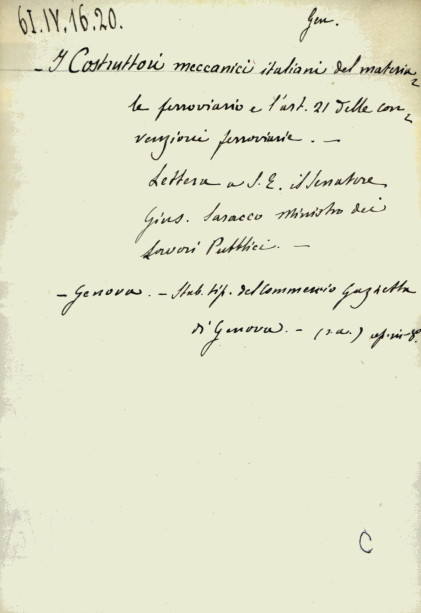 61.IV.16.20.
Gen.
- I Costruttori meccanici italiani del materia=
le ferroviario e l'art. 21 delle con=
venzioni ferroviarie. -
Lettera a S. E. il Senatore
Gius. Saracco Ministro dei
Lavori Pubblici. -
- Genova. - Stab. tip. del Commercio Gazzetta
di Genova. - (s.a.) op. in-8.
C